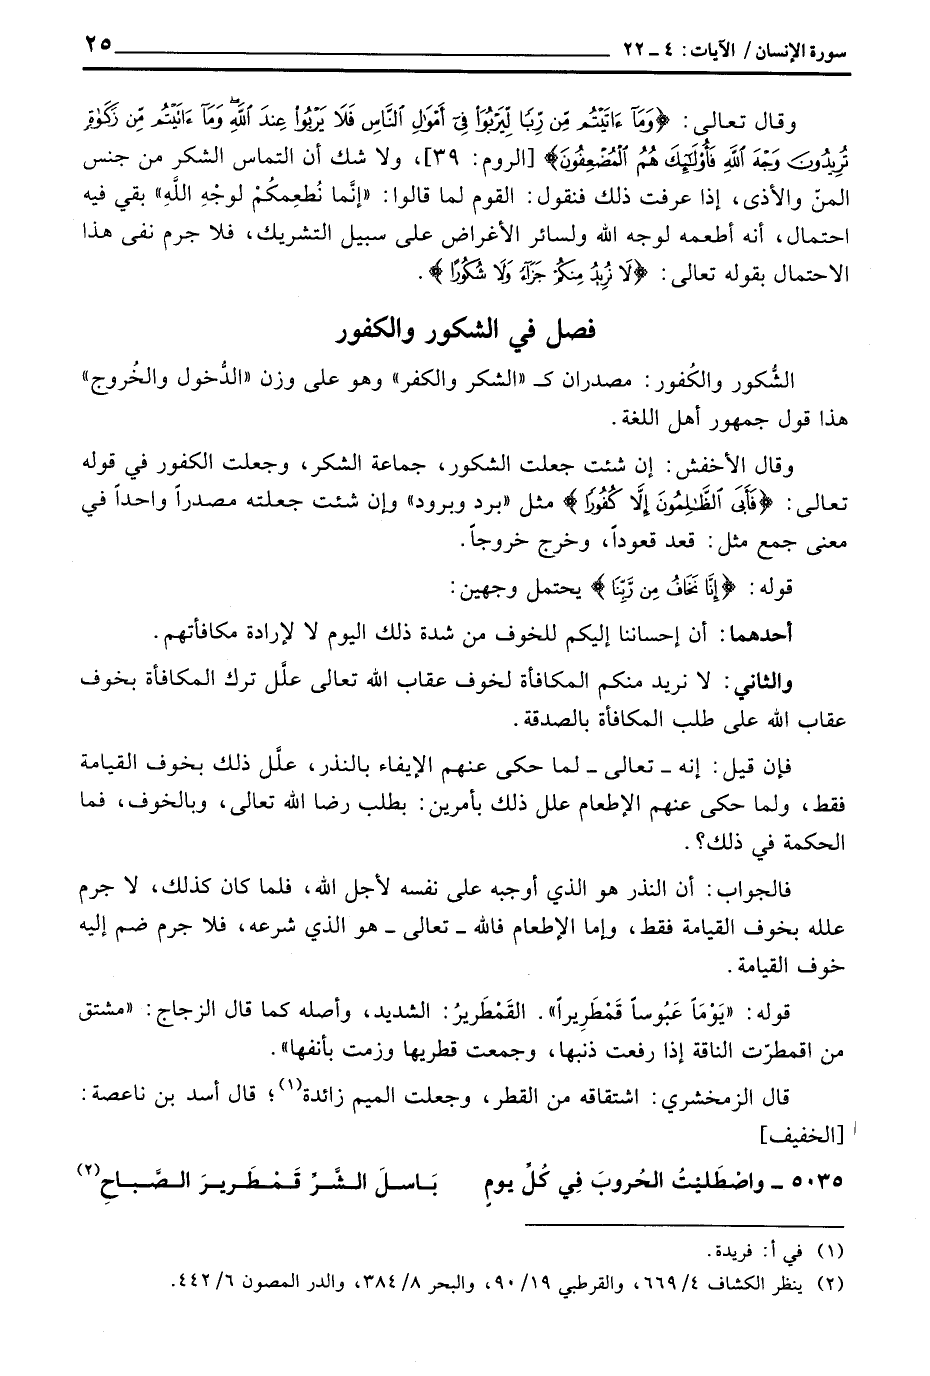 سورة الإنسان / الآيات : ٤ ـ ٢٢ ٢٥
وقال تعالى : ﴿وَمَآ ءَاتَيْتُم مِّن رِّبًا لِّيَرْبُوَا۟ فِىٓ أَمْوَٰلِ ٱلنَّاسِ فَلَا يَرْبُوا۟ عِندَ ٱللَّهِۖ وَمَآ ءَاتَيْتُم مِّن زَكَوٰةٍ
تُرِيدُونَ وَجْهَ ٱللَّهِ فَأُو۟لَـٰٓئِكَ هُمُ ٱلْمُضْعِفُونَ﴾ [الروم : ٣٩]، ولا شك أن التماس الشكر من جنس
المنّ والأذى، إذا عرفت ذلك فنقول : القوم لما قالوا : «إنَّما نُطعِمكُمْ لوجْهِ اللَّهِ» بقي فيه
احتمال، أنه أطعمه لوجه الله ولسائر الأغراض على سبيل التشريك، فلا جرم نفى هذا
الاحتمال بقوله تعالى : ﴿لَا نُرِيدُ مِنكُمْ جَزَآءً وَلَا شُكُورًا﴾ .
فصل في الشكور والكفور
الشُّكور والكُفور : مصدران كـ «الشكر والكفر» وهو على وزن «الدُّخول والخُروج»
هذا قول جمهور أهل اللغة .
وقال الأخفش : إن شئت جعلت الشكور، جماعة الشكر، وجعلت الكفور في قوله
تعالى : ﴿فَأَبَى ٱلظَّـٰلِمُونَ إِلَّا كُفُورًا﴾ مثل «برد وبرود» وإن شئت جعلته مصدراً واحداً في
معنى جمع مثل : قعد قعوداً، وخرج خروجاً .
قوله : ﴿إِنَّا نَخَافُ مِن رَّبِّنَا﴾ يحتمل وجهين :
أحدهما : أن إحساننا إليكم للخوف من شدة ذلك اليوم لا لإرادة مكافأتهم .
والثاني : لا نريد منكم المكافأة لخوف عقاب الله تعالى علَّل ترك المكافأة بخوف
عقاب الله على طلب المكافأة بالصدقة .
فإن قيل : إنه ـ تعالى ـ لما حكى عنهم الإيفاء بالنذر، علَّل ذلك بخوف القيامة
فقط، ولما حكى عنهم الإطعام علل ذلك بأمرين : بطلب رضا الله تعالى، وبالخوف، فما
الحكمة في ذلك؟ .
فالجواب : أن النذر هو الذي أوجبه على نفسه لأجل الله، فلما كان كذلك، لا جرم
علله بخوف القيامة فقط، وإما الإطعام فالله ـ تعالى ـ هو الذي شرعه، فلا جرم ضم إليه
خوف القيامة .
قوله : «يَوْمَاً عَبُوساً قَمْطَرِيراً» . القَمْطَرِيرُ : الشديد، وأصله كما قال الزجاج : «مشتق
من اقمطرّت الناقة إذا رفعت ذنبها، وجمعت قطريها وزمت بأنفها» .
قال الزمخشري : اشتقاقه من القطر، وجعلت الميم زائدة(١)؛ قال أسد بن ناعصة :
[الخفيف]
٥٠٣٥ ـ واصْطَليْتُ الحُروبَ فِي كُلِّ يومٍ بَاسـلَ الشَّـرِّ قَـمْـطَـريـرَ الـصَّـبـاحِ(٢)
(١) في أ : فريدة .
(٢) ينظر الكشاف ٤/ ٦٦٩، والقرطبي ١٩/ ٩٠، والبحر ٨/ ٣٨٤، والدر المصون ٦/ ٤٤٢.